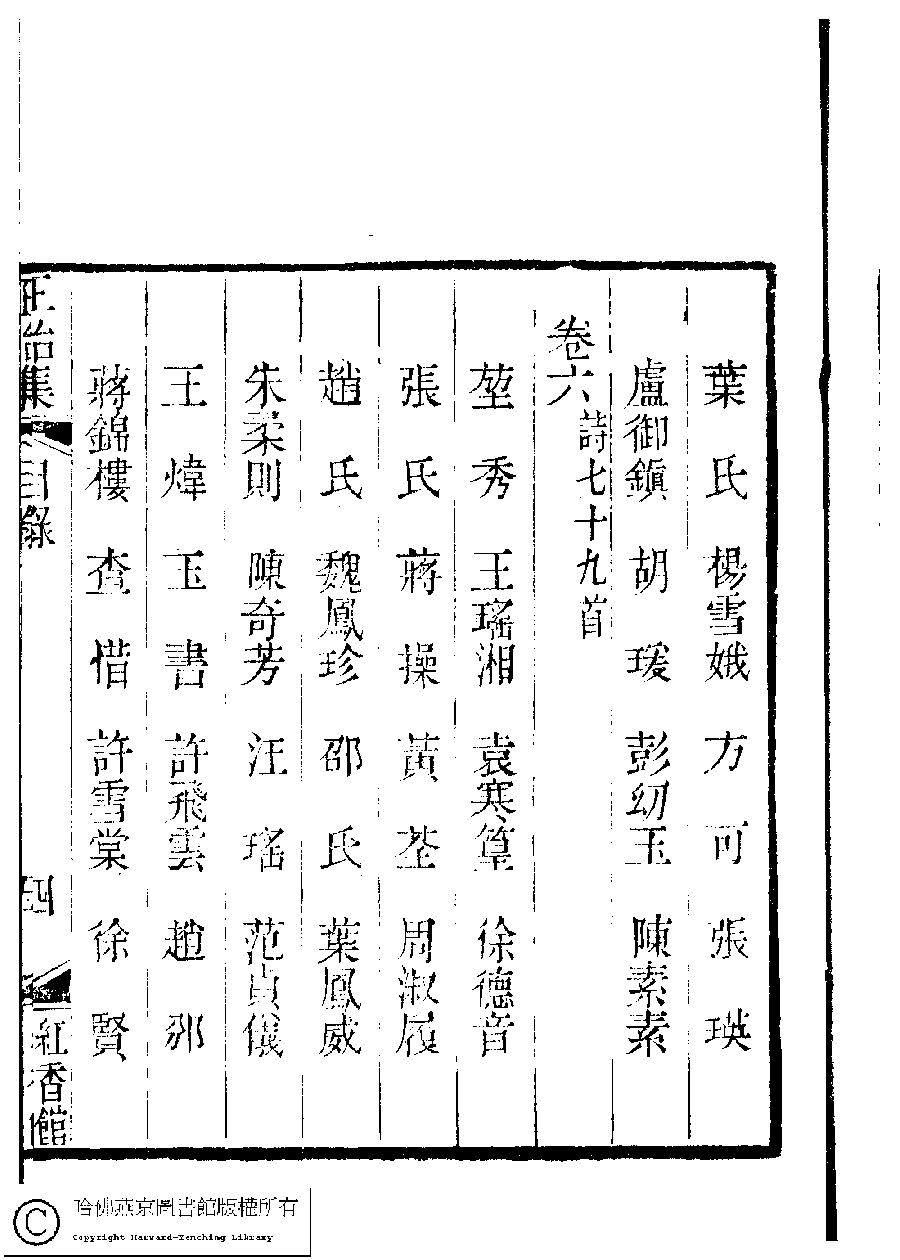 葉氏 楊雪娥 方可 張瑛
盧御鎭 胡瑗 彭幼玉 陳素素
卷六 詩七十九首
堃秀 王瑤湘 袁寒篁 徐德音
張氏 蔣操 黃荃 周淑履
趙氏 魏鳳珍 邵氏 葉鳳威
朱柔則 陳奇芳 汪瑤 范貞儀
王煒 玉書 許飛雲 趙邠
蔣錦樓 查惜 許雪棠 徐賢
正始集 目錄 四 紅香館
哈佛燕京圖書館版權所有
Copyright Harvard-Yenching Library